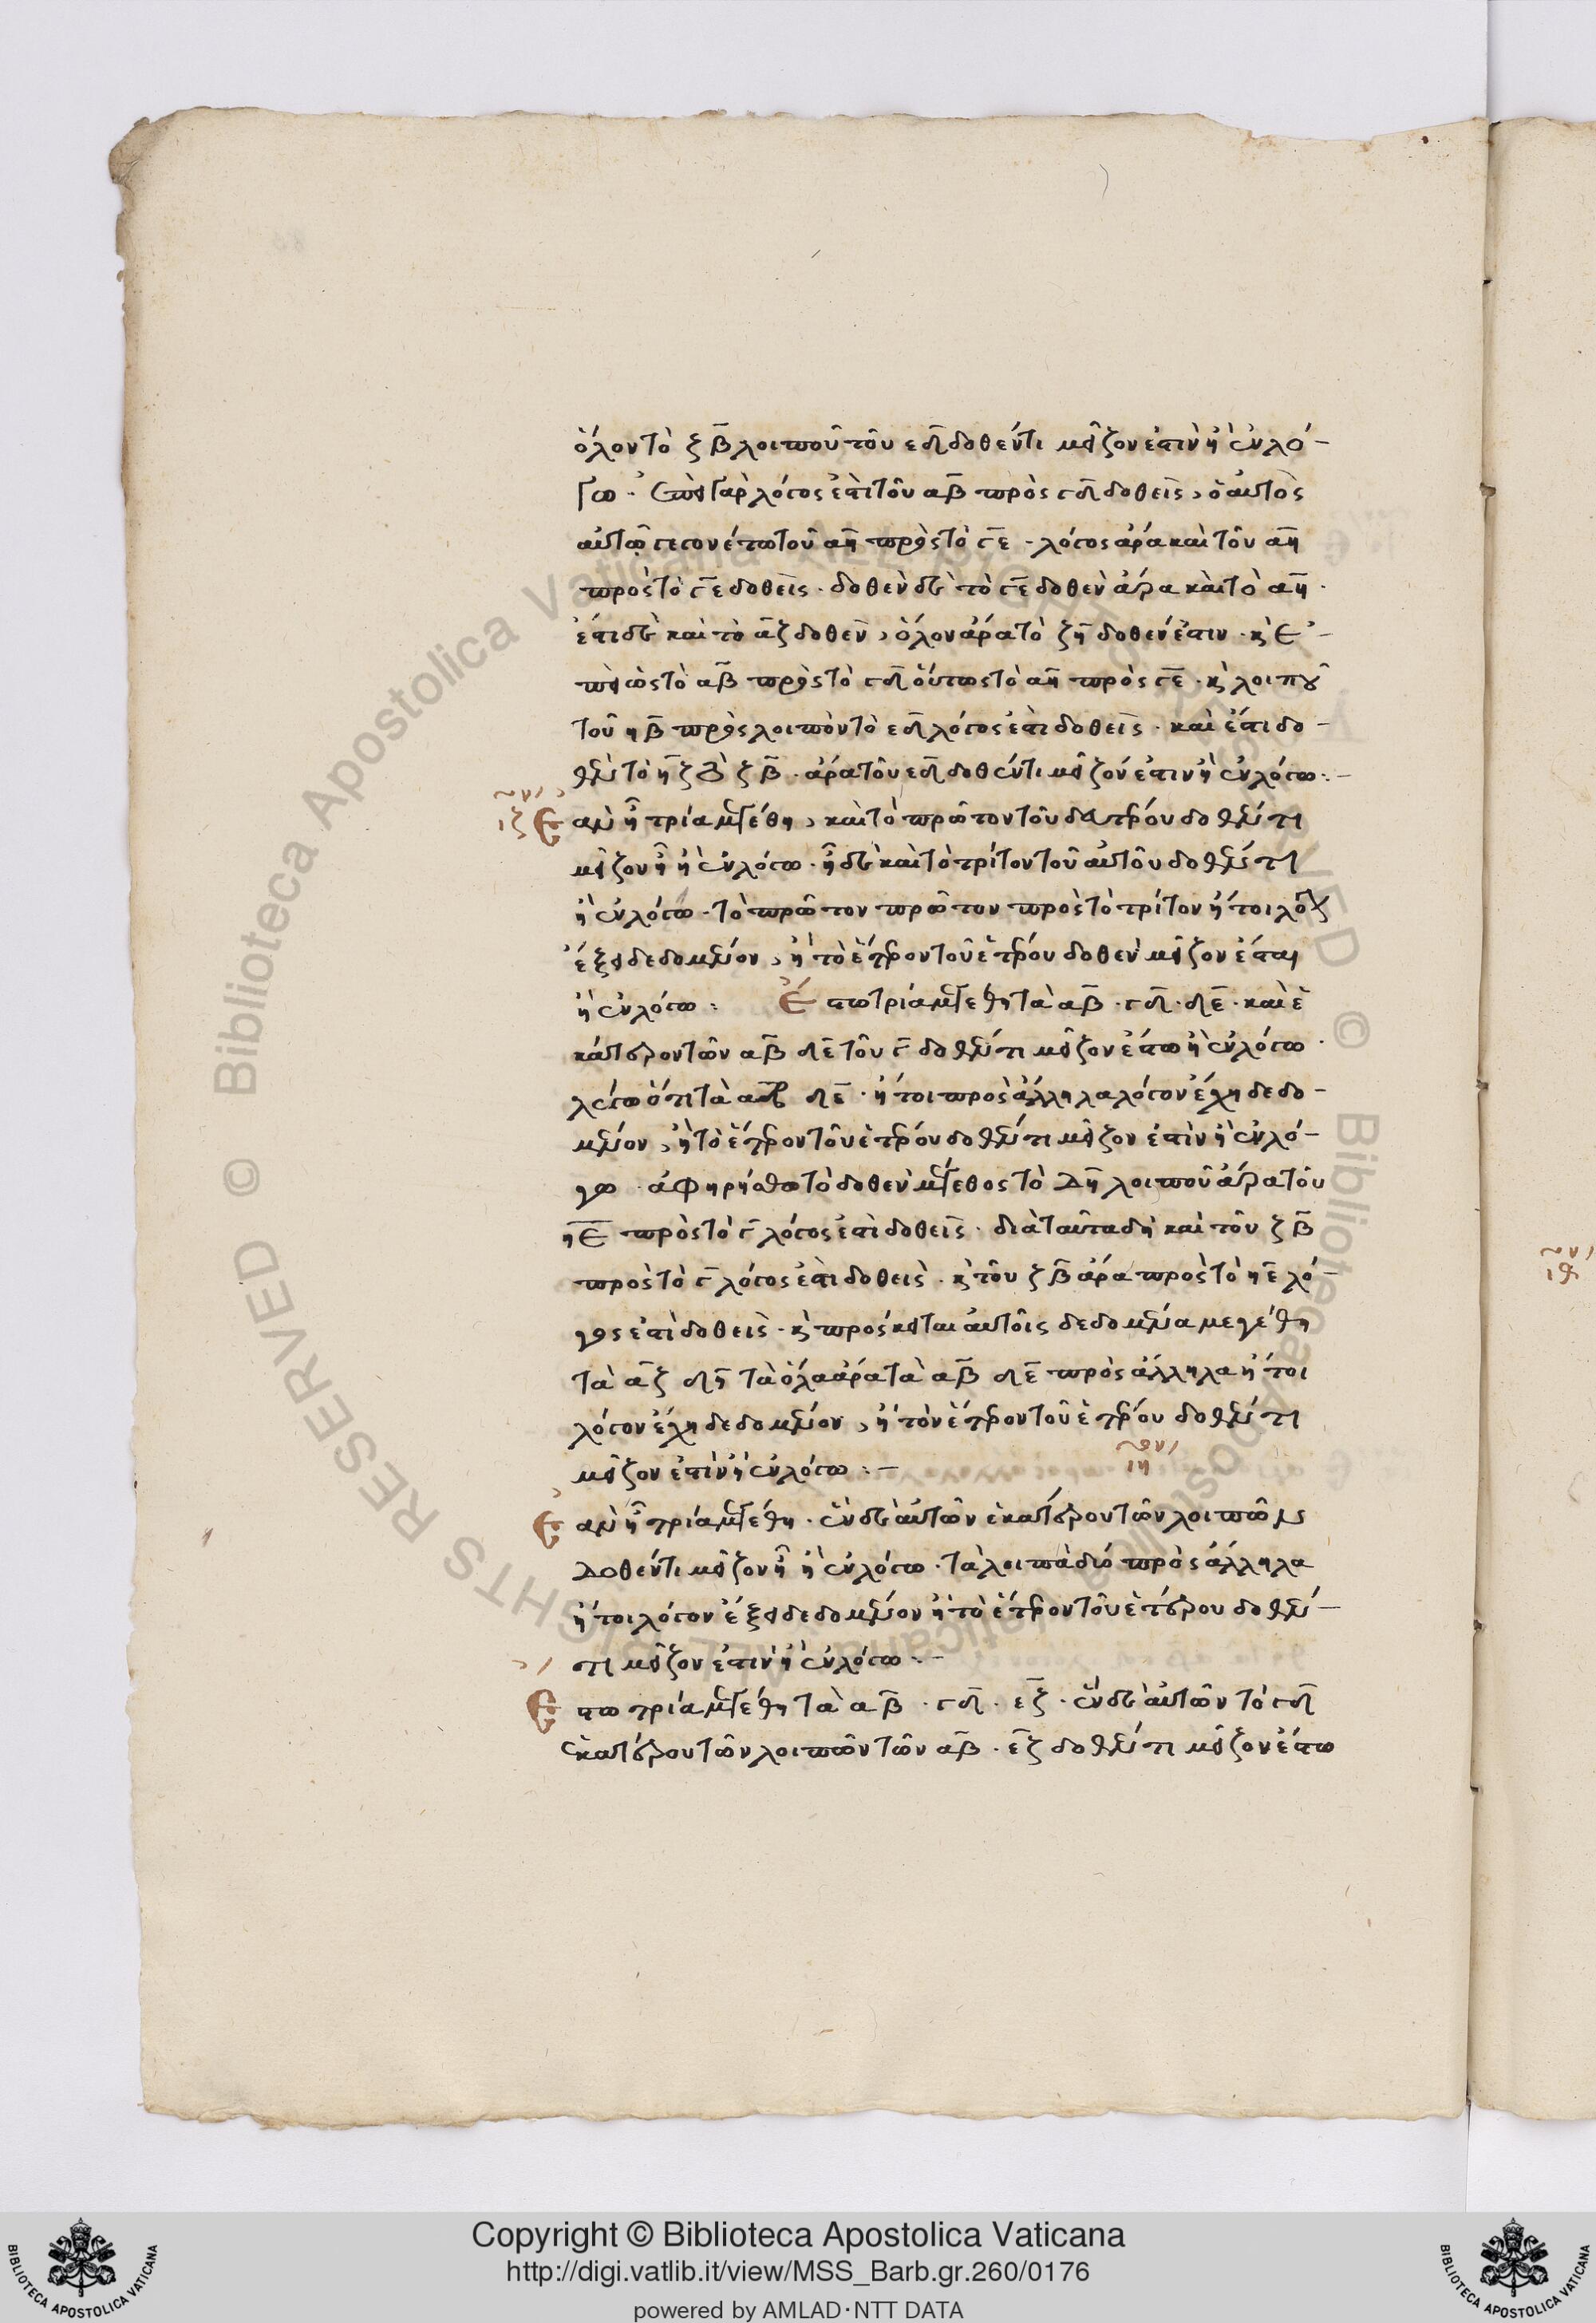 ὅλον τὸ ζβ λοιποῦ τοῦ εδ δοθέντι μεῖζόν ἐστιν ἢ ἐν λό-
γω. ἐπεὶ γὰρ λόγος ἐστὶ τοῦ αβ πρὸς γδ δοθεὶς, ὁ αὐτὸς
αὐτῶ γεγονέτω τοῦ αη πρὸς τὸ γε. λόγος ἄρα καὶ τοῦ αη
πρὸς τὸ γε δοθεὶς. δοθὲν δὲ τὸ γε δοθὲν ἄρα καὶ τὸ αη.
ἔστι δὲ καὶ τὸ αζ δοθὲν, ὅλον ἄρα τὸ ζη δοθέν ἐστιν. κ ἐ-
πεὶ ὡς τὸ αβ πρὸς τὸ γδ οὕτως τὸ αη πρὸς γε. κ λοιποῦ
τοῦ ηβ πρὸς λοιπὸν τὸ εδ λόγος ἐστὶ δοθεὶς. καὶ ἔστι δο-
θὲν τὸ ηζ τὸ ζβ. ἄρα τοῦ εδ δοθέντι μεῖζόν ἐστιν ἢ ἐν λόγω:-
ιζ Ἐὰν ἦ τρία μεγέθη, καὶ τὸ πρῶτον τοῦ δευτέρου δοθέντι
μεῖζον ἦ ἢ ἐν λόγω. ἦ δὲ καὶ τὸ τρίτον τοῦ αὐτοῦ δοθέντι
ἢ ἐν λόγω. τὸ πρῶτον πρῶτον πρὸς τὸ τρίτον ἤτοι λόγον
ἕξει δεδομένον, ἢ τὸ ἕτερον τοῦ ἑτέρου δοθὲν μεῖζον ἔσται
ἢ ἐν λόγω: Ἔστω τρία μεγέθη τὰ αβ. γδ. δε. καὶ ἑ
κάτερον τῶν αβ δε τοῦ γ δοθέντι μεῖζον ἔστω ἢ ἐν λόγω.
λέγω ὅτι τὰ αβ δε. ἤτοι πρὸς ἄλληλα λόγον ἔχη δεδο-
μένον, ἢ τὸ ἕτερον τοῦ ἑτέρου δοθέντι μεῖζον ἐστὶν ἢ ἐν λό-
γω. ἀφηρήσθω τὸ δοθὲν μέγεθος τὸ δη λοιποῦ ἄρα τοῦ
ηε πρὸς τὸ γ λόγος ἐστὶ δοθεὶς. διὰ ταῦτα δὴ καὶ τοῦ ζβ
πρὸς τὸ γ λόγος ἐστὶ δοθεὶς. κ τοῦ ζβ ἄρα πρὸς τὸ ηε λό-
γος ἐστὶ δοθεὶς. κ πρόσκειται αὐτοῖς δεδομένα μεγέθη
τὰ αζ δη τὰ ὅλα ἄρα τὰ αβ δε πρὸς ἄλληλα ἤτοι
λόγον ἔχη δεδομένον, ἢ τὸν ἕτερον τοῦ ἑτέρου δοθέντι
μεῖζον ἐστὶν ἢ ἐν λόγω:- ιη
Ἐὰν ἦ τρία μεγέθη. ἓν δὲ αὐτῶν ἑκατέρου τῶν λοιπῶν
δοθέντι μεῖζον ἦ ἢ ἐν λόγω. τὰ λοιπὰ δύο πρὸς ἄλληλα
ἤτοι λόγον ἕξει δεδομένον ἢ τὸ ἕτερον τοῦ ἑτέρου δοθέν-
τι μεῖζον ἐστιν ἢ ἐν λόγω:-
Ἔστω τρία μεγέθη τὰ αβ. γδ. εζ. ἓν δὲ αὐτῶν τὸ γδ
ἑκατέρου τῶν λοιπῶν τῶν αβ. εζ δοθέντι μεῖζον ἔστω
ιθ
Copyright © Biblioteca Apostolica Vaticana
http://digi.vatlib.it/view/MSS_Barb.gr.260/0176
powered by AMLAD·NTT DATA
BIBLIOTECA APOSTOLICA VATICANA
BIBLIOTECA APOSTOLICA VATICANA